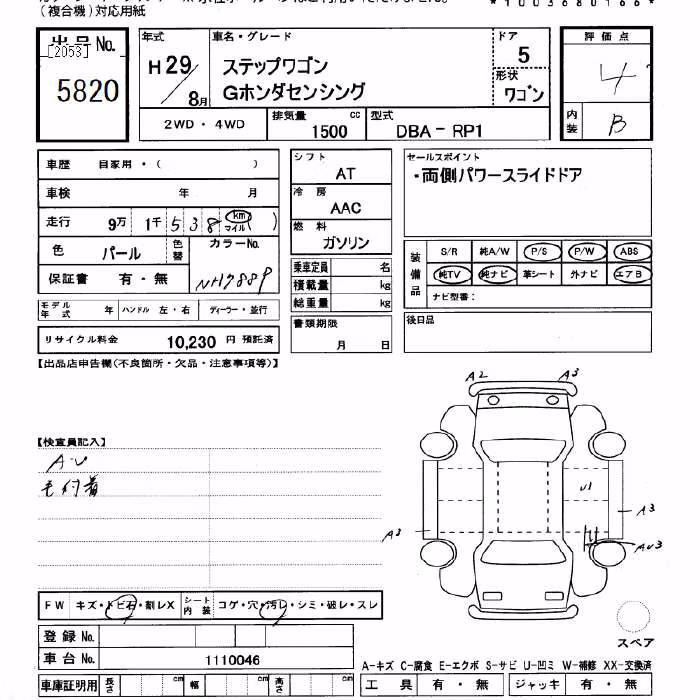 (複合機)対応用紙
*1003680166*
出品No.
[2053]
5820
年式
H29/8月
車名・グレード
ステップワゴン
Gホンダセンシング
ドア
5
形状
ワゴン
評価点
4
内装
B
2WD・4WD
排気量
1500 cc
型式
DBA-RP1
車歴 自家用・( )
車検 年 月
走行 9万 1千 538 km マイル ( )
色 パール 色替 カラーNo.
NH788P
保証書 有・無
モデル年式 年 ハンドル 左・右 ディーラー・並行
リサイクル料金 10,230円 預託済
シフト
AT
冷房
AAC
燃料
ガソリン
乗車定員 名
積載量 kg
総重量 kg
書類期限
月 日
セールスポイント
・両側パワースライドドア
装備品
S/R 純A/W P/S P/W ABS
純TV 純ナビ 革シート 外ナビ エアB
ナビ型番:
後日品
【出品店申告欄(不良箇所・欠品・注意事項等)】
【検査員記入】
A・U
毛付着
A2 A3
U1
A3
A3
AU3
スペア
FW キズ・トビ石・割レX シート内装 コゲ・穴・汚レ・シミ・破レ・スレ
登録No.
車台No. 1110046
車庫証明用 長さ cm 幅 cm 高さ cm
A-キズ C-腐食 E-エクボ S-サビ U-凹ミ W-補修 XX-交換済
工具 有・無 ジャッキ 有・無